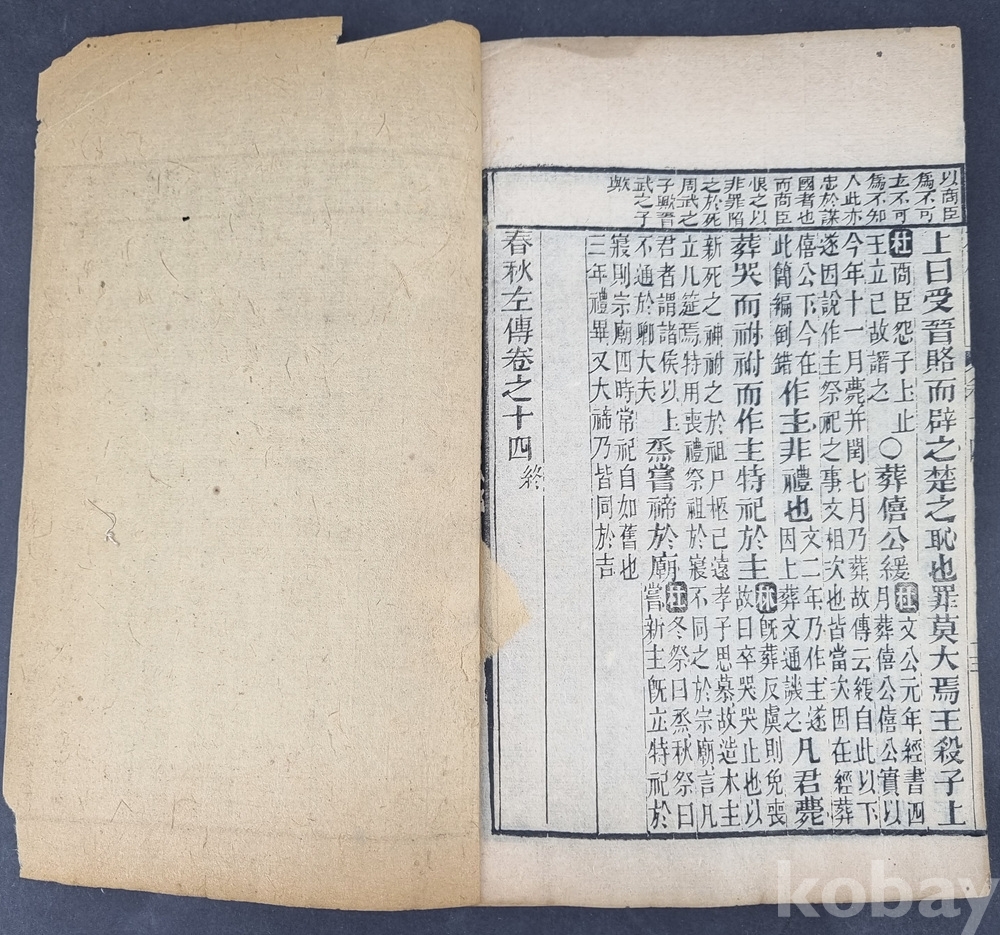 以商臣
為不可
立不可
為不知
人此亦
忠於謀
國者也
而商臣
恨之以
非罪陷
之於死
周武之
子歟晉
武之子
歟
上曰受晉賂而辟之楚之恥也罪莫大焉王殺子上
杜商臣怨子上止
王立己故譖之
○葬僖公緩
杜文公元年經書四
月葬僖公僖公實以
今年十一月薨并閏七月乃葬故傳云緩自此以下
遂因說作主祭祀之事文相次也皆當次因在經葬
僖公下今在
此簡編倒錯
作主非禮也
文二年乃作主遂
因上葬文通譏之
凡君薨
葬哭而祔祔而作主特祀於主
林既葬反虞則免喪
故曰卒哭哭止也以
新死之神祔之於祖尸柩已遠孝子思慕故造木主
立几筵焉特用喪禮祭祖於寢不同之於宗廟言凡
君者謂諸侯以上
不通於卿大夫
烝嘗禘於廟
杜冬祭曰烝秋祭曰
嘗新主既立特祀於
寢則宗廟四時常祀自如舊也
三年禮畢又大禘乃皆同於吉
春秋左傳卷之十四
終
kobay